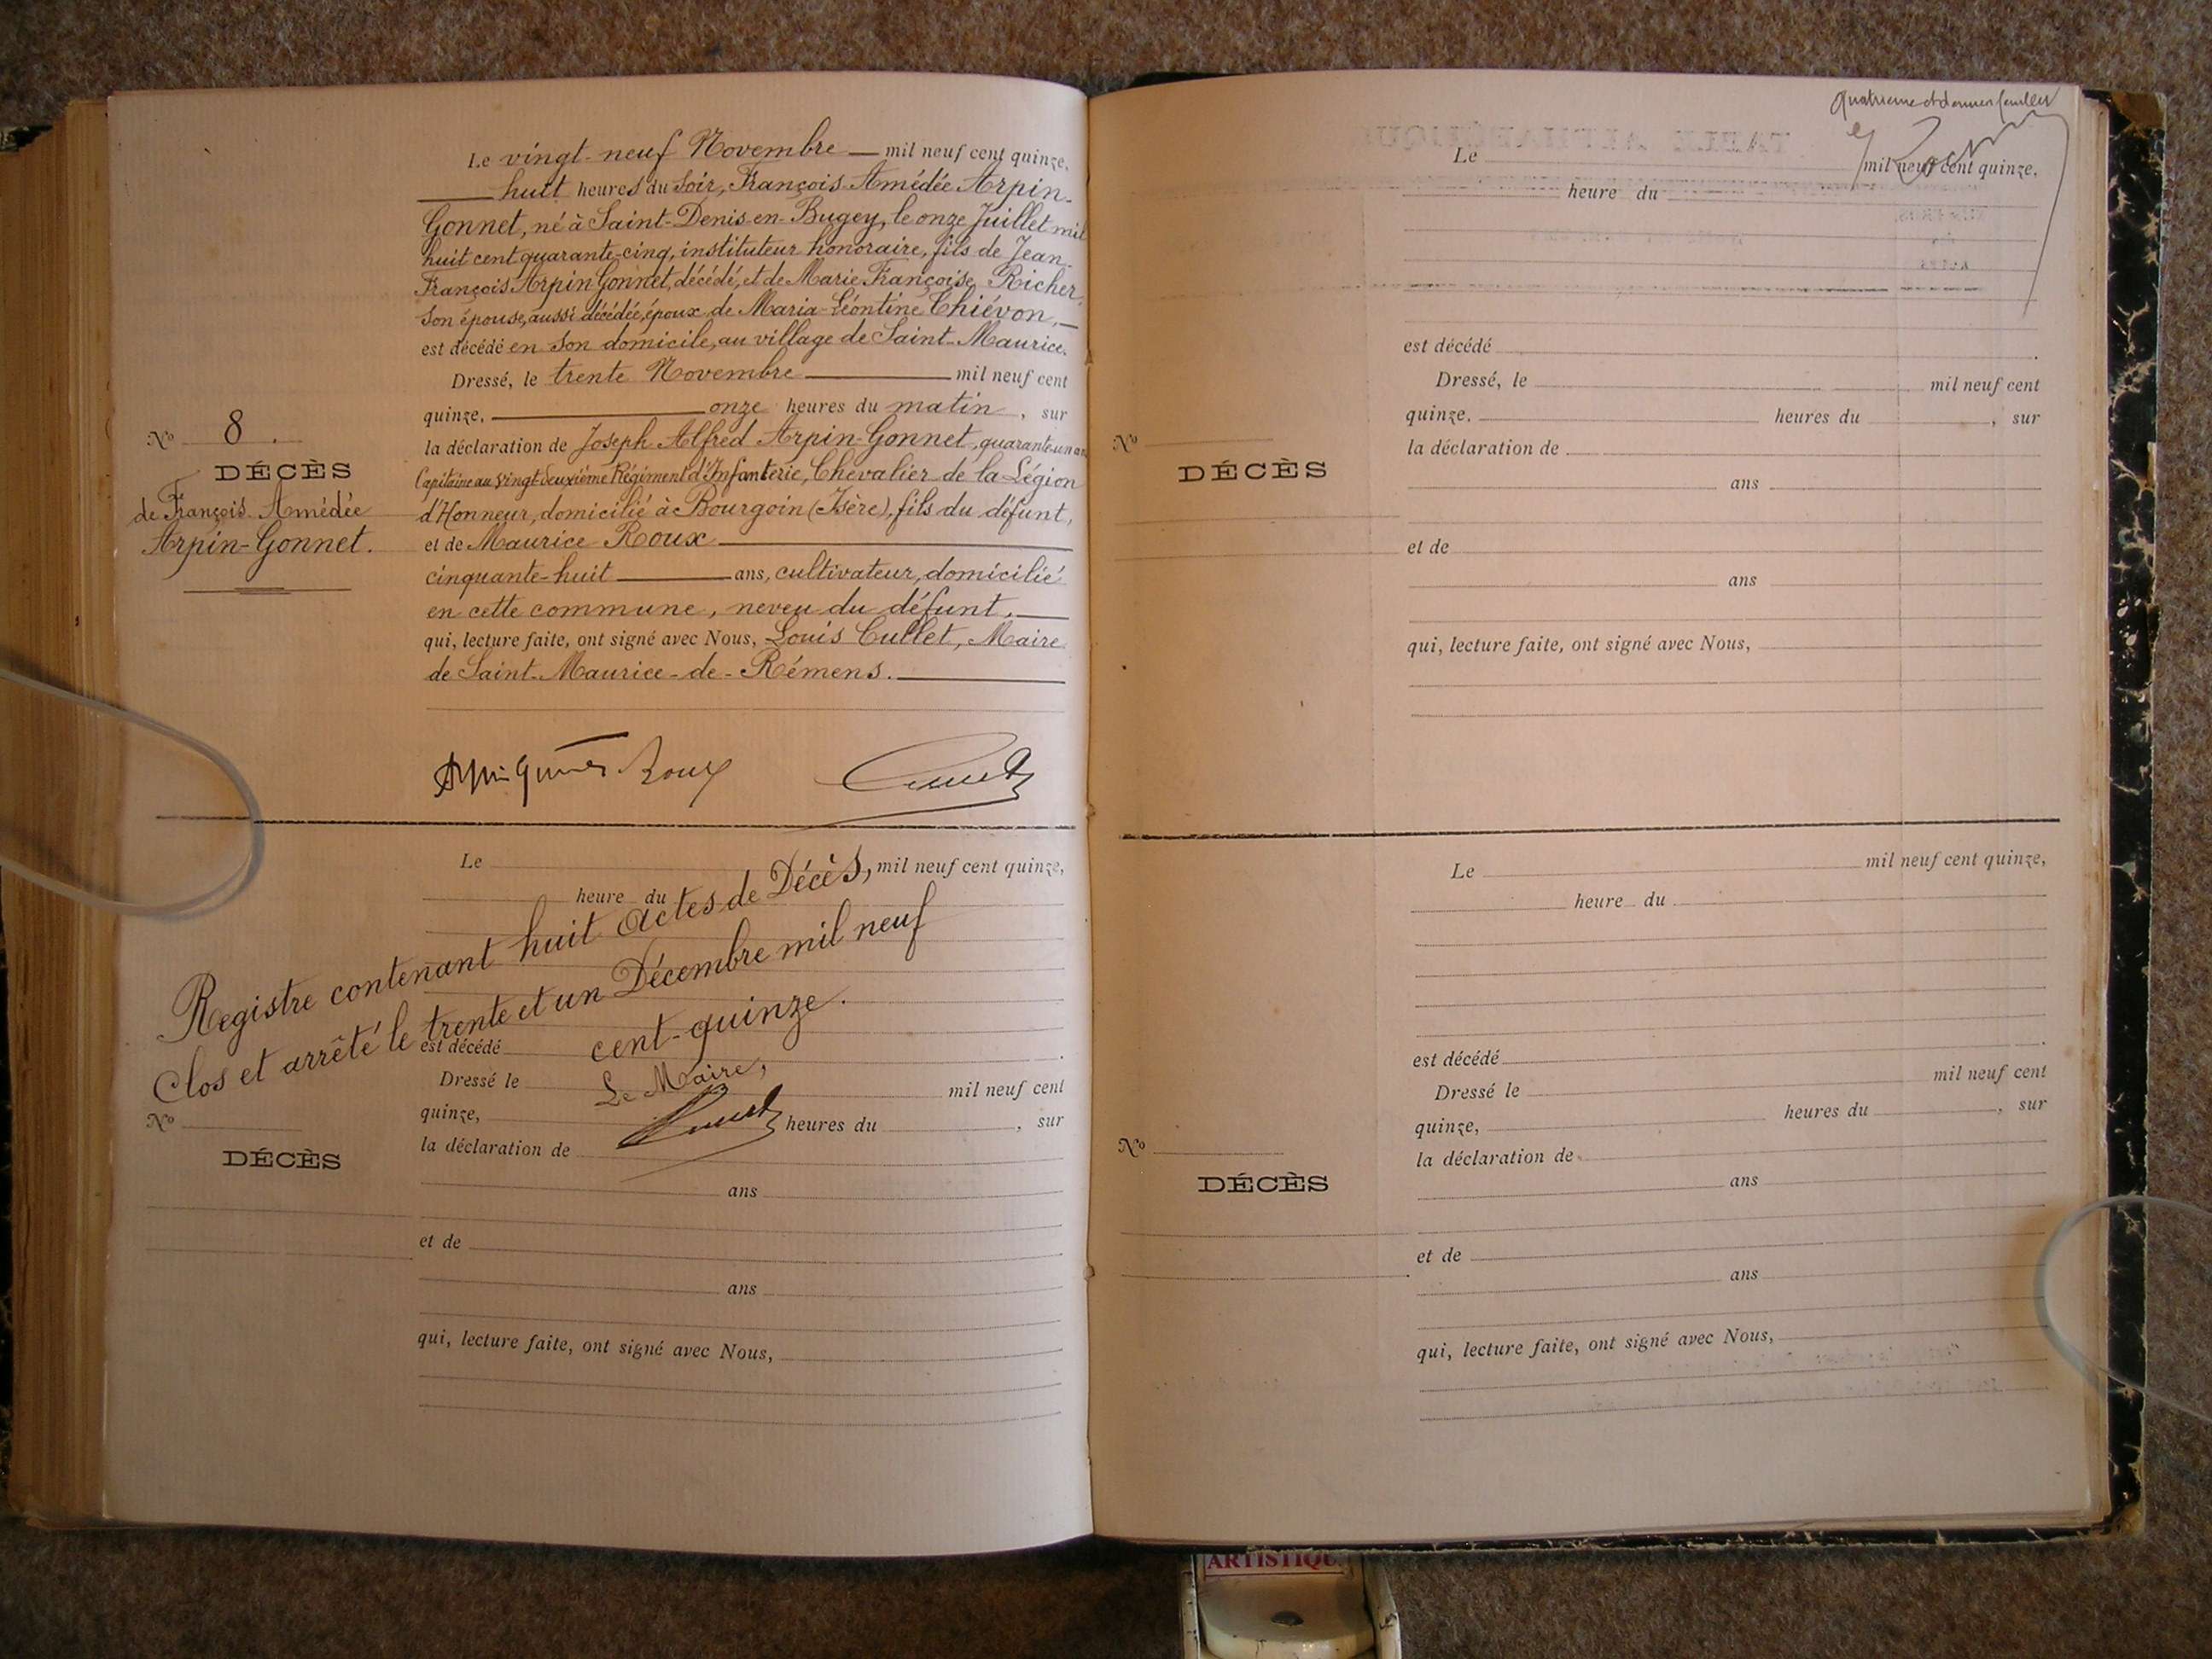 Le vingt-neuf Novembre — mil neuf cent quinze,
huit heures du soir, François-Amédée Arpin-
Gonnet, né à Saint-Denis-en-Bugey, le onze Juillet mil
huit cent quarante-cinq, instituteur honoraire, fils de Jean-
François Arpin Gonnet, décédé, et de Marie Françoise Richer,
son épouse, aussi décédée, époux de Maria-Léontine Chiévon, —
est décédé en son domicile, au village de Saint-Maurice.
Dressé, le trente Novembre — mil neuf cent
quinze, — onze heures du matin, sur
la déclaration de Joseph Alfred Arpin-Gonnet, quarante-un an
Capitaine au vingt-deuxième Régiment d'Infanterie, Chevalier de la Légion
d'Honneur, domicilié à Bourgoin (Isère), fils du défunt,
et de Maurice Roux —
cinquante-huit — ans, cultivateur, domicilié
en cette commune, neveu du défunt, —
qui, lecture faite, ont signé avec Nous, Louis Cullet, Maire
de Saint-Maurice-de-Rémens. —
Nº 8.
DÉCÈS
de François-Amédée
Arpin-Gonnet.
Roux
Le mil neuf cent quinze,
heure du
Registre contenant huit Actes de Décès,
Clos et arrêté le trente et un Décembre mil neuf
cent-quinze.
est décédé
Le Maire,
Dressé le mil neuf cent
quinze, heures du , sur
la déclaration de
Nº
DÉCÈS
ans
et de
ans
qui, lecture faite, ont signé avec Nous,
Quatrieme et dernier feuillet
Le mil neuf cent quinze,
heure du
est décédé
Dressé, le mil neuf cent
quinze. heures du , sur
la déclaration de
Nº
DÉCÈS
ans
et de
ans
qui, lecture faite, ont signé avec Nous,
Le mil neuf cent quinze,
heure du
est décédé
Dressé le mil neuf cent
quinze, heures du , sur
la déclaration de
Nº
DÉCÈS
ans
et de
ans
qui, lecture faite, ont signé avec Nous,
ARTISTIQU